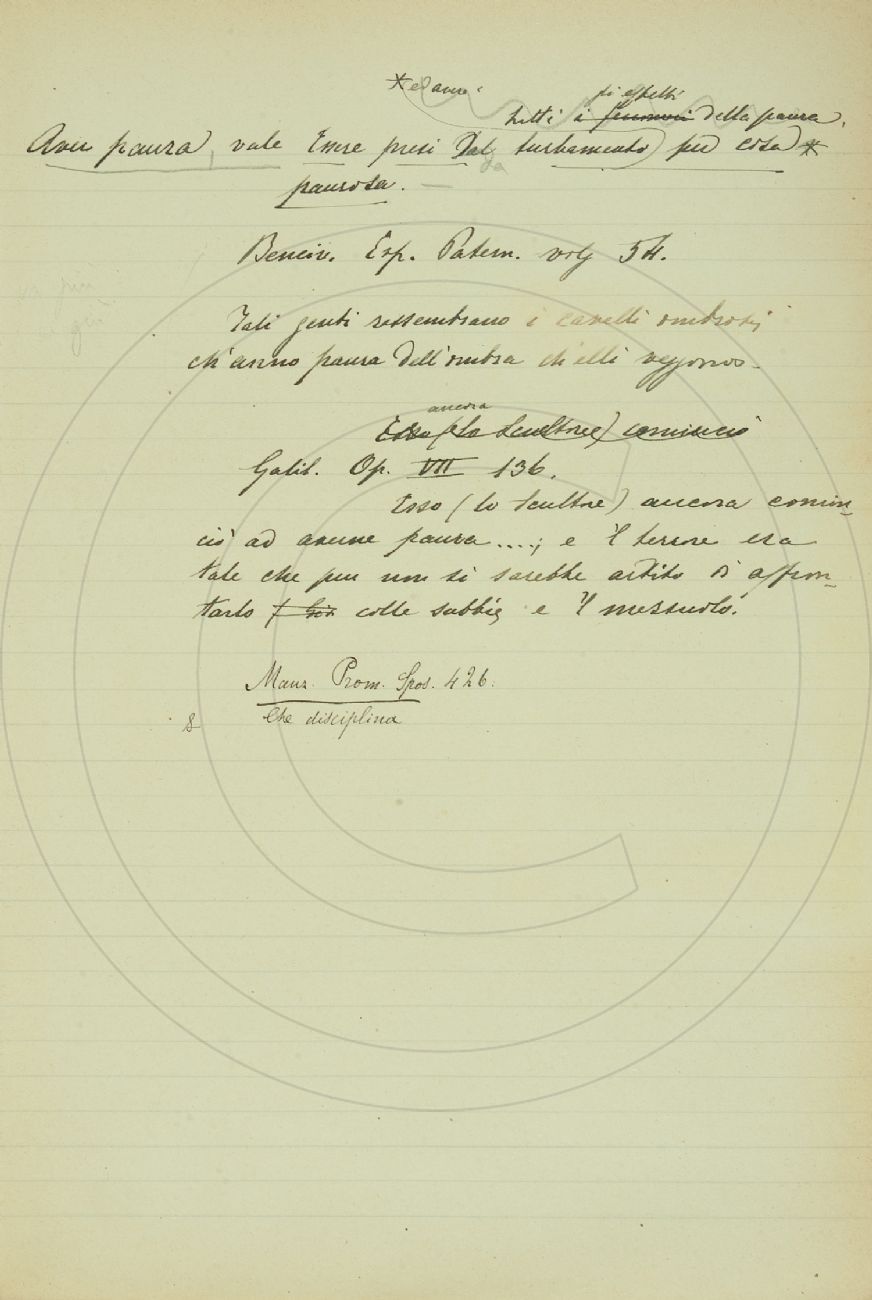 * ed avere
tutti i fenomeni gli effetti della paura,
Aver paura, vale Esser presi Dal turbamento per cosa *
da
paurosa. —
Benciv. Esp. Patern. volg 54.
Tali genti ressembrano i cavelli ombrosi
ch'anno paura dell'ombra ch'elli veggono.
ancora
Esso (lo Scultore) cominciò
Galil. Op. VII 136.
Esso (lo Scultore) ancora comin-
ciò ad averne paura....; e 'l terrore era
tale che piu non si sarebbe ardito di affron-
tarlo colle subbie e 'l mazzuolo.
Manz. Prom. Spos. 426.
8 Che disciplina